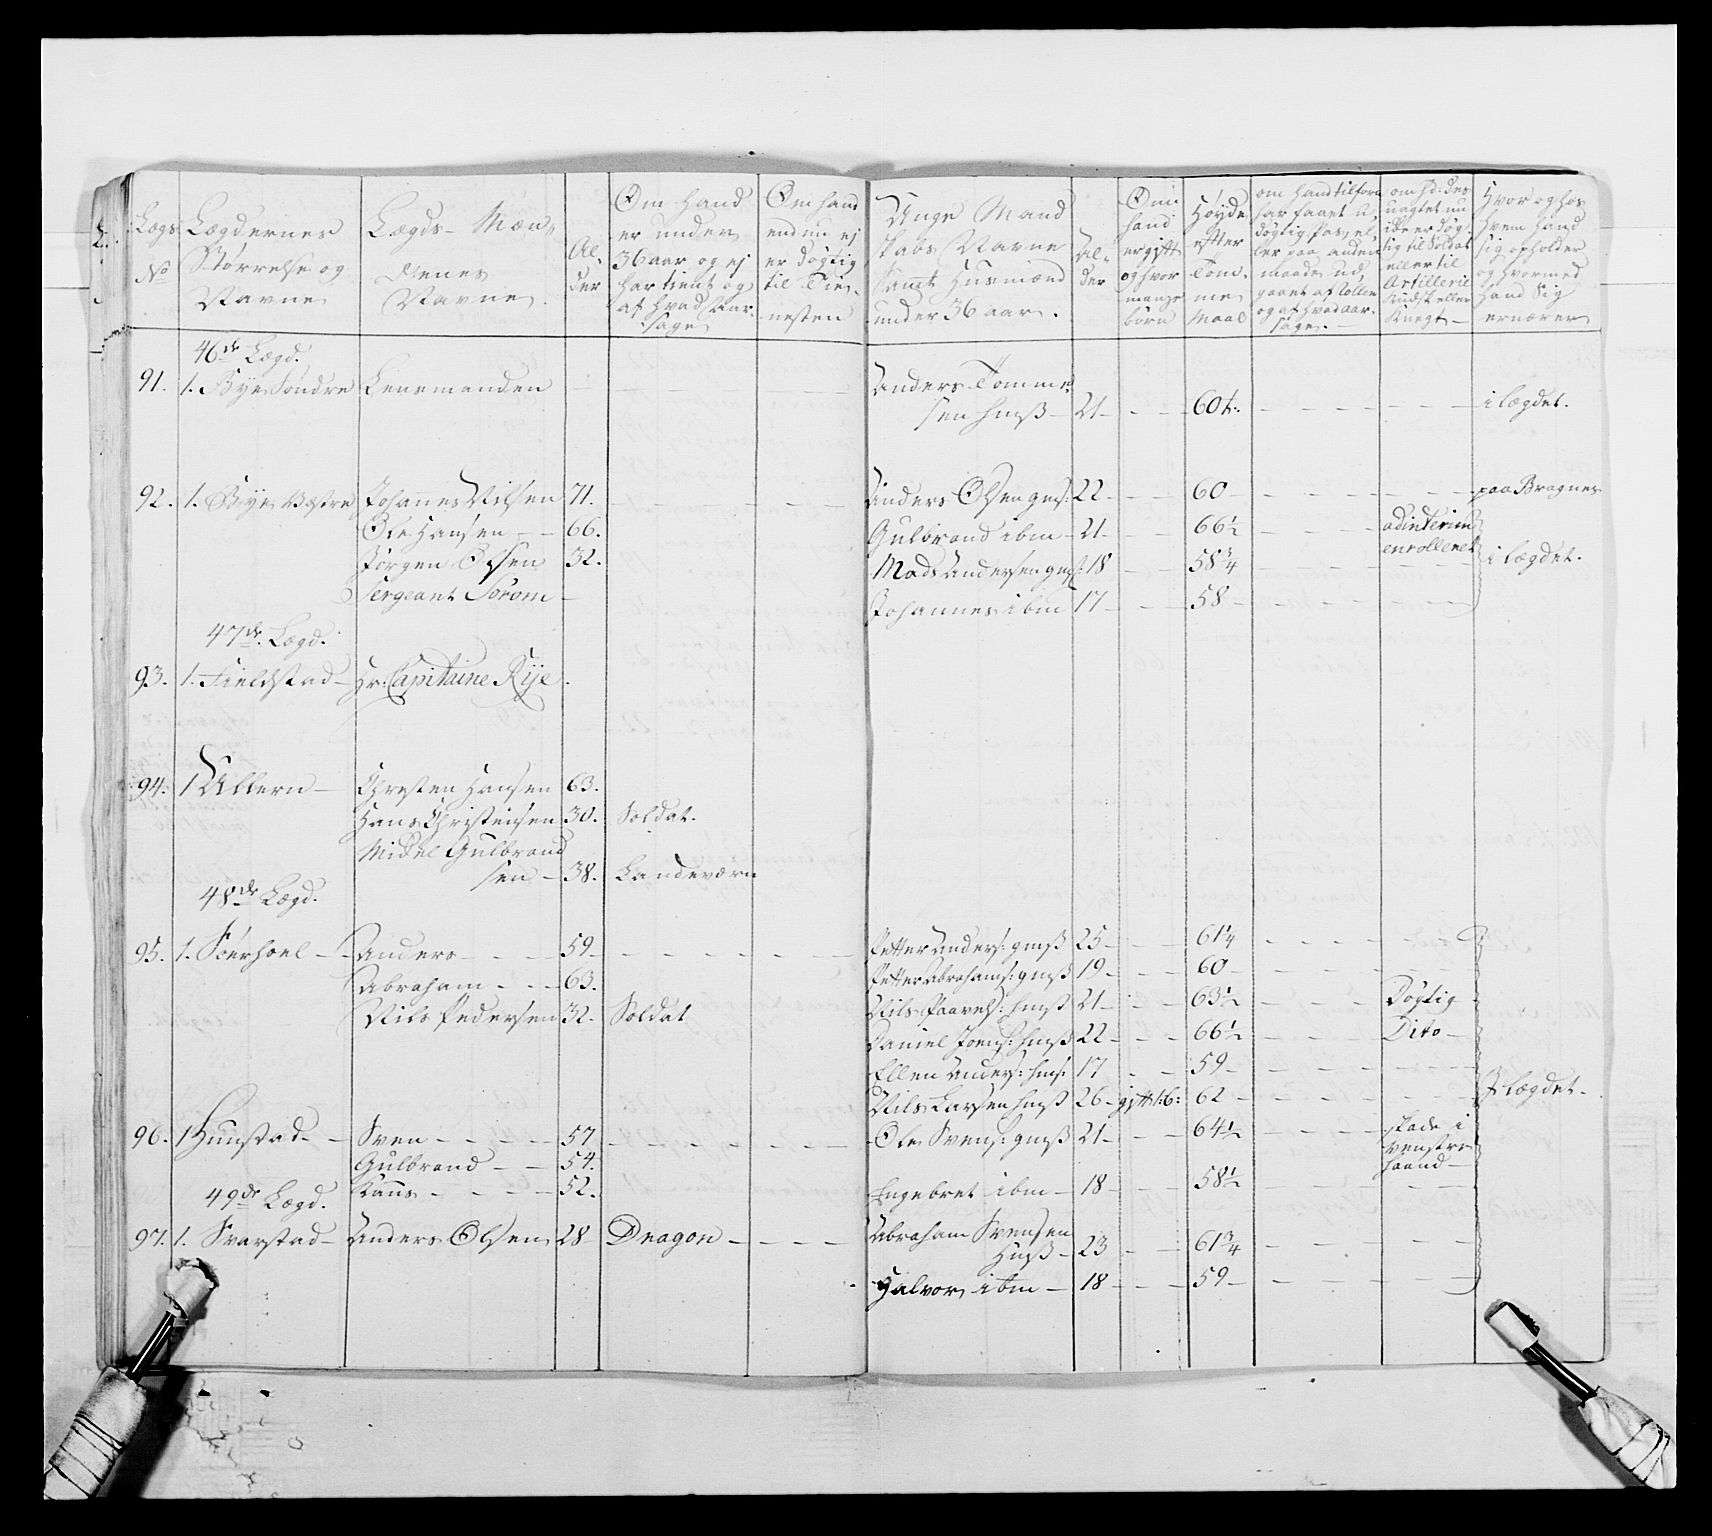 Lægs No
Lægdernes Størrelse og Navne
Lægds-Mændenes Navne
Alder
Om hand er under 36 aar og ej har tient og af hvad Aarsage
Om hand endnu ej er døgtig til Tienesten
Unge Mandskabs Navne Samt Husmænd under 36 aar.
Alder
Om hand er gift og hvor mange børn
Høyde efter Tomme Maal
om hand tilforn har faaet udøgtig pas, eller paa anden maade udgaaet af Rollen og af hvad aarsage.
uagtet nu icke er døgtig til Soldat eller til Artillerie Kudsk eller Knegt
Hvor og hos hvem hand sig opholder og hvormed hand sig ernærer
46de Lægd.
91. 1. Bye Søndre Lensmanden - - - - - Anders Tommessen hmß - 21 - - - 60 - - - - - i lægdet.
92. 1. Bye Vestre Johanes Nilsen 71. - - - - Anders Olsen gmß: 22 - - - 60 - - - - - paa Bragnes
Ole Hansen - - 66. Gulbrand ibm - 21 - - - 66½ - - - - adinterim enrolleret
Jørgen Olsen 32. Mads Andersen gmß: 18 - - - 58¾ - - - - i lægdet.
Sergeant Sørom - Johannes ibm 17 - - - 58 - - - -
47de Lægd.
93. 1. Fieldstad - Hr: Capitaine Rije.
94. 1 Ullern - Christen Hansen 63.
Hans Christensen 30. Soldat.
Mickel Gulbrandsen - 38. Landeværn
48de Lægd.
95. 1. Søerhoel - Anders - - - 59 - - - - - Petter Anders: gmß 25 - - - 61¼ - - - -
Abraham - - - 63. Petter Abrahams: gmß 19 - - - 60 - - - -
Nils Pedersen 32. Soldat Nils Paavels: hmß 21 - - - 63½ - - - Døgtig
Daniel Joens: hmß 22 - - - 66½ - - - Dito -
Ellen Anders: hmß: 17 - - 59 - - - -
Nils Larsen hmß 26 - gift 1: b: 62 - - - - I lægdet.
96. 1 Hunstad - - Sven - - - - 57 - - - - - Ole Svens: gmß 21 - - - 64½ - - - - skade i venstre haand -
Gulbrand - - 54.
49de Lægd. - - - - 52. Engebret ibm - 18 - - - 58½ - - - -
97. 1. Svarstad - Anders Olsen 28 Dragon - - - - Abraham Svensen Hmß - 23 - - 61¾ - - - -
Halvor ibm - 18 - - - 59 - - - -